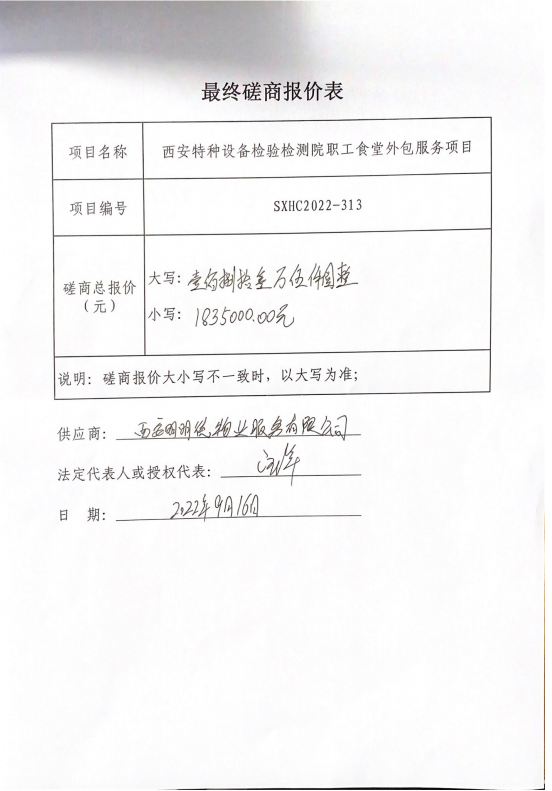 最终磋商报价表
项目名称 西安特种设备检验检测院职工食堂外包服务项目
项目编号 SXHC2022-313
磋商总报价（元）
大写：壹佰捌拾叁万伍仟圆整
小写：1835000.00元
说明：磋商报价大小写不一致时，以大写为准；
供应商：西安明明德物业服务有限公司
法定代表人或授权代表：
日 期：2022年9月16日